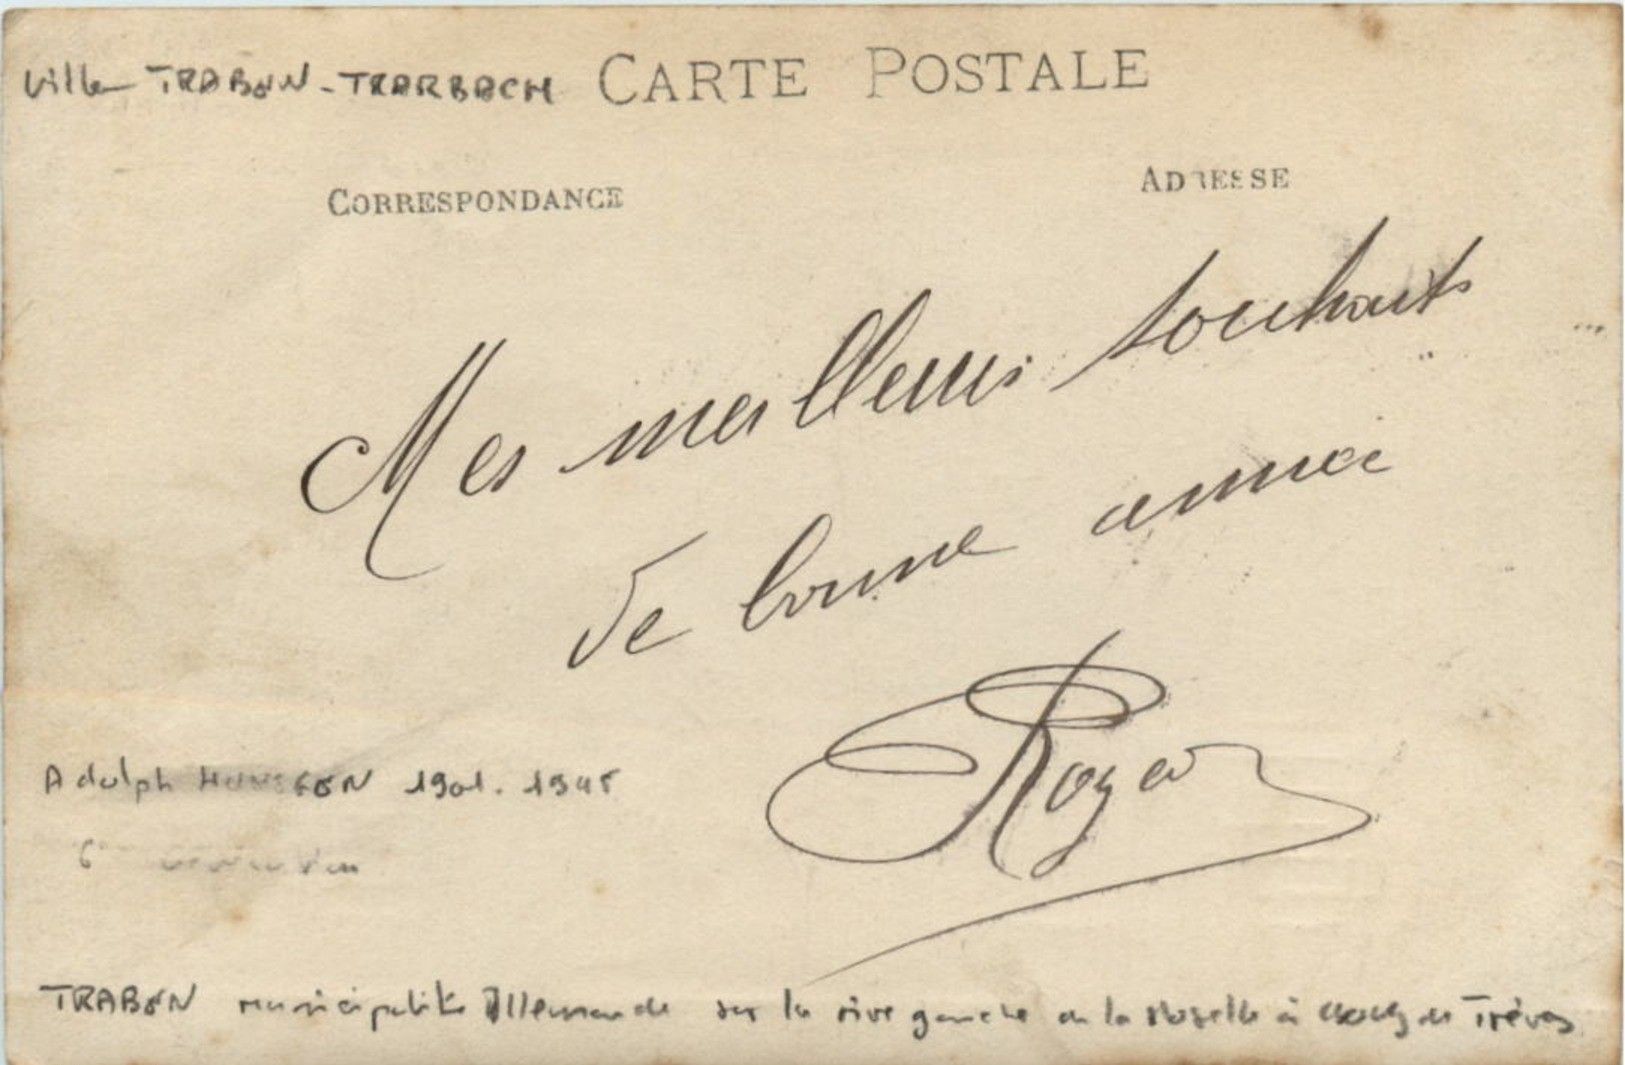 Ville TRABEN-TRARBACH CARTE POSTALE
CORRESPONDANCE
ADRESSE
Mes meilleurs souhaits
de bonne année
Roger
Adolph 1901. 1945
TRABEN municipalité Allemande sur la rive gauche de la Moselle à de Trèves